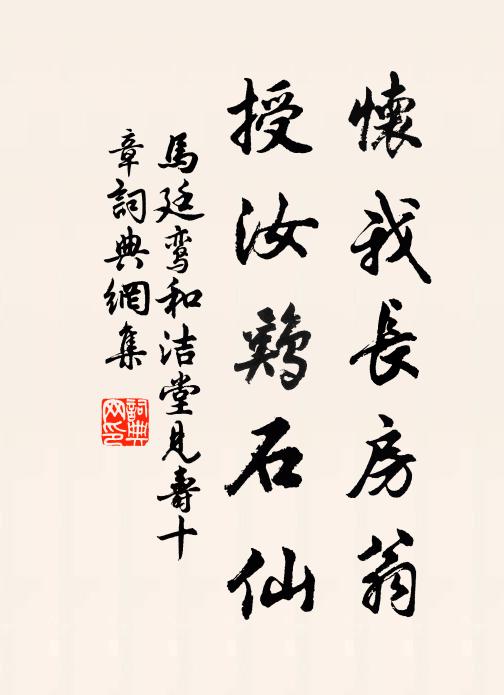 懷我長房翁
授汝鷄石仙
馬廷鸞和洁堂見壽十
章詞典網集
詞典
网印